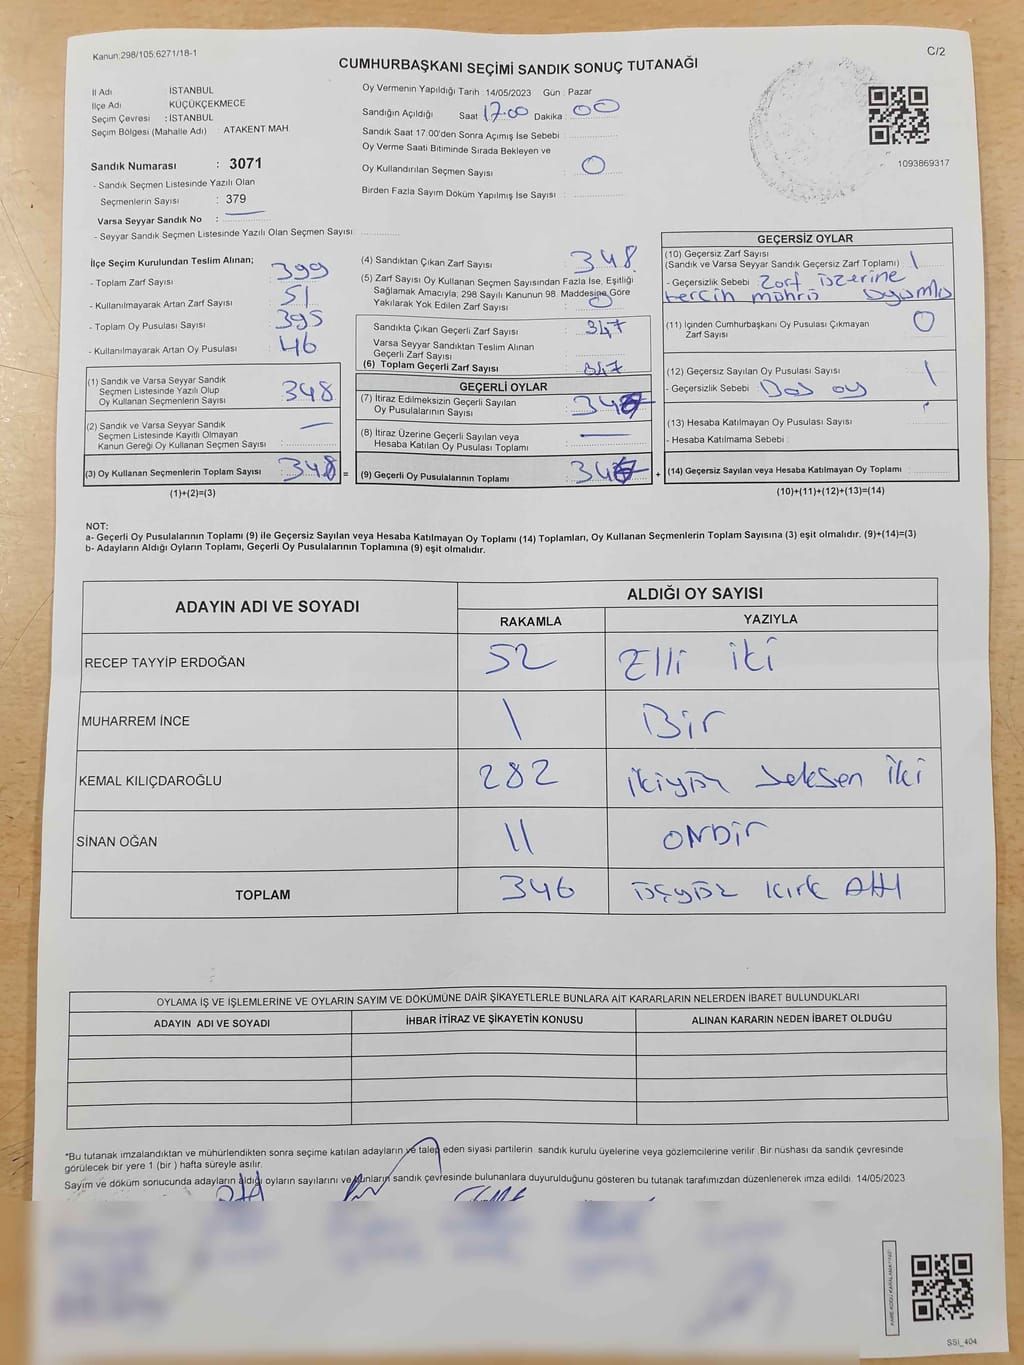 Kanun:298/105;6271/18-1
C/2
CUMHURBAŞKANI SEÇİMİ SANDIK SONUÇ TUTANAĞI
İl Adı İSTANBUL
İlçe Adı KÜÇÜKÇEKMECE
Seçim Çevresi : İSTANBUL
Seçim Bölgesi (Mahalle Adı) : ATAKENT MAH
Sandık Numarası : 3071
- Sandık Seçmen Listesinde Yazılı Olan
Seçmenlerin Sayısı : 379
Varsa Seyyar Sandık No :
- Seyyar Sandık Seçmen Listesinde Yazılı Olan Seçmen Sayısı
Oy Vermenin Yapıldığı Tarih :14/05/2023 Gün : Pazar
Sandığın Açıldığı Saat 17.00 Dakika : 00
Sandık Saat 17:00'den Sonra Açımış İse Sebebi
Oy Verme Saati Bitiminde Sırada Bekleyen ve
Oy Kullandırılan Seçmen Sayısı : 0
Birden Fazla Sayım Döküm Yapılmış İse Sayısı :
1093869317
İlçe Seçim Kurulundan Teslim Alınan;
- Toplam Zarf Sayısı : 399
- Kullanılmayarak Artan Zarf Sayısı : 51
- Toplam Oy Pusulası Sayısı : 395
- Kullanılmayarak Artan Oy Pusulası : 46
(1) Sandık ve Varsa Seyyar Sandık
Seçmen Listesinde Yazılı Olup
Oy Kullanan Seçmenlerin Sayısı : 348
(2) Sandık ve Varsa Seyyar Sandık
Seçmen Listesinde Kayıtlı Olmayan
Kanun Gereği Oy Kullanan Seçmen Sayısı : —
(3) Oy Kullanan Seçmenlerin Toplam Sayısı : 348 =
(1)+(2)=(3)
(4) Sandıktan Çıkan Zarf Sayısı : 348
(5) Zarf Sayısı Oy Kullanan Seçmen Sayısından Fazla İse, Eşitliği
Sağlamak Amacıyla; 298 Sayılı Kanunun 98. Maddesine Göre
Yakılarak Yok Edilen Zarf Sayısı : 0
Sandıkta Çıkan Geçerli Zarf Sayısı : 347
Varsa Seyyar Sandıktan Teslim Alınan
Geçerli Zarf Sayısı
(6) Toplam Geçerli Zarf Sayısı : 347
GEÇERLİ OYLAR
(7) İtiraz Edilmeksizin Geçerli Sayılan
Oy Pusulalarının Sayısı
(8) İtiraz Üzerine Geçerli Sayılan veya
Hesaba Katılan Oy Pusulası Toplamı : —
(9) Geçerli Oy Pusulalarının Toplamı : +
GEÇERSİZ OYLAR
(10) Geçersiz Zarf Sayısı
(Sandık ve Varsa Seyyar Sandık Geçersiz Zarf Toplamı) : 1
- Geçersizlik Sebebi : Zarf üzerine
tercih mührü
(11) İçinden Cumhurbaşkanı Oy Pusulası Çıkmayan
Zarf Sayısı : 0
(12) Geçersiz Sayılan Oy Pusulası Sayısı : 1
- Geçersizlik Sebebi : Boş oy
(13) Hesaba Katılmayan Oy Pusulası Sayısı :
- Hesaba Katılmama Sebebi :
(14) Geçersiz Sayılan veya Hesaba Katılmayan Oy Toplamı :
(10)+(11)+(12)+(13)=(14)
NOT:
a- Geçerli Oy Pusulalarının Toplamı (9) ile Geçersiz Sayılan veya Hesaba Katılmayan Oy Toplamı (14) Toplamları, Oy Kullanan Seçmenlerin Toplam Sayısına (3) eşit olmalıdır. (9)+(14)=(3)
b- Adayların Aldığı Oyların Toplamı, Geçerli Oy Pusulalarının Toplamına (9) eşit olmalıdır.
ADAYIN ADI VE SOYADI ALDIĞI OY SAYISI
RAKAMLA YAZIYLA
RECEP TAYYİP ERDOĞAN 52 Elli iki
MUHARREM İNCE 1 Bir
KEMAL KILIÇDAROĞLU 282 ikiyüz seksen iki
SİNAN OĞAN 11 ONbir
TOPLAM 346 üçyüz kırk Altı
OYLAMA İŞ VE İŞLEMLERİNE VE OYLARIN SAYIM VE DÖKÜMÜNE DAİR ŞİKAYETLERLE BUNLARA AİT KARARLARIN NELERDEN İBARET BULUNDUKLARI
ADAYIN ADI VE SOYADI İHBAR İTİRAZ VE ŞİKAYETİN KONUSU ALINAN KARARIN NEDEN İBARET OLDUĞU
*Bu tutanak imzalandıktan ve mühürlendikten sonra seçime katılan adayların ve talep eden siyasi partilerin sandık kurulu üyelerine veya gözlemcilerine verilir. Bir nüshası da sandık çevresinde
görülecek bir yere 1 (bir ) hafta süreyle asılır.
Sayım ve döküm sonucunda adayların aldığı oyların sayılarını ve bunların sandık çevresinde bulunanlara duyurulduğunu gösteren bu tutanak tarafımızdan düzenlenerek imza edildi. 14/05/2023
SSI_404